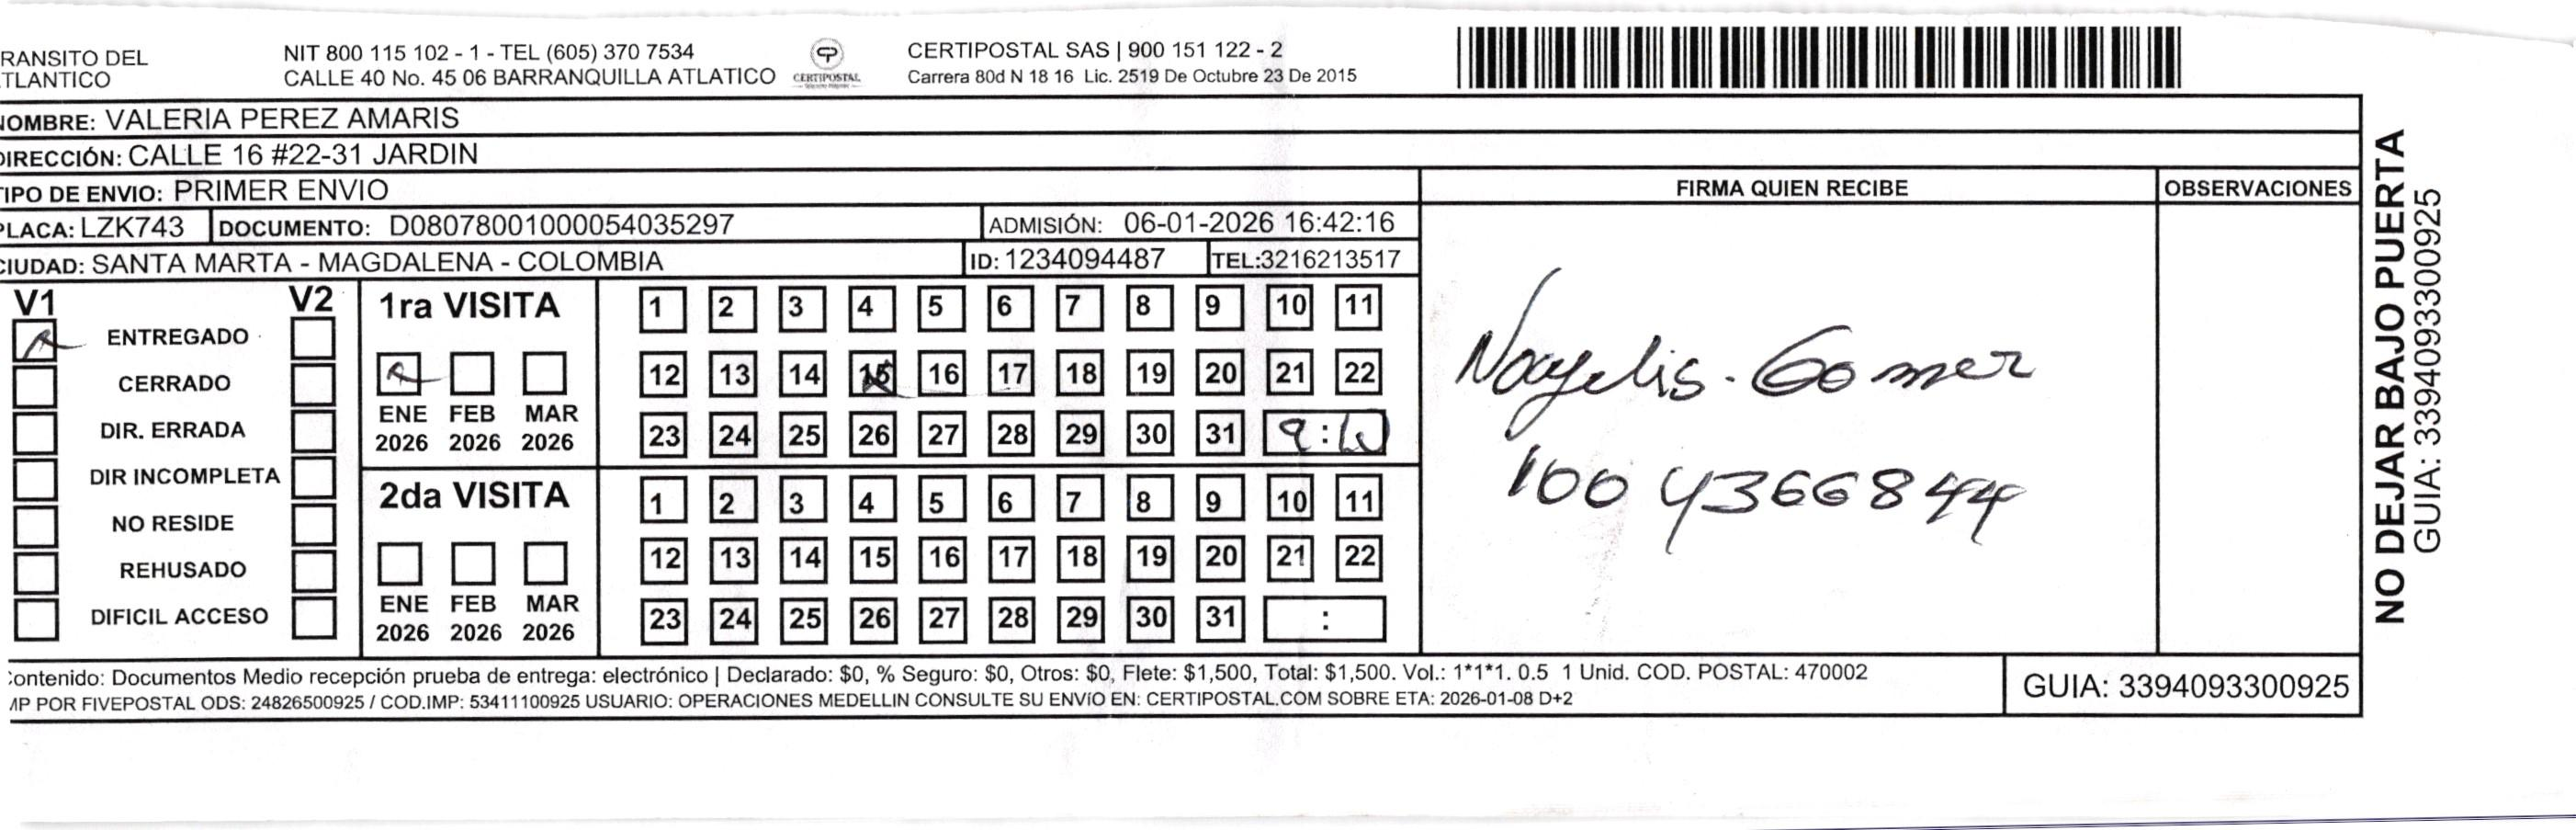 RANSITO DEL
TLANTICO
NIT 800 115 102 - 1 - TEL (605) 370 7534
CALLE 40 No. 45 06 BARRANQUILLA ATLATICO
CERTIPOSTAL
CERTIPOSTAL SAS | 900 151 122 - 2
Carrera 80d N 18 16 Lic. 2519 De Octubre 23 De 2015
NOMBRE: VALERIA PEREZ AMARIS
DIRECCIÓN: CALLE 16 #22-31 JARDIN
TIPO DE ENVIO: PRIMER ENVIO
FIRMA QUIEN RECIBE
OBSERVACIONES
PLACA: LZK743 DOCUMENTO: D08078001000054035297 ADMISIÓN: 06-01-2026 16:42:16
CIUDAD: SANTA MARTA - MAGDALENA - COLOMBIA ID: 1234094487 TEL:3216213517
V1 V2
ENTREGADO
CERRADO
DIR. ERRADA
DIR INCOMPLETA
NO RESIDE
REHUSADO
DIFICIL ACCESO
1ra VISITA
ENE FEB MAR
2026 2026 2026
1 2 3 4 5 6 7 8 9 10 11
12 13 14 15 16 17 18 19 20 21 22
23 24 25 26 27 28 29 30 31 9:
2da VISITA
ENE FEB MAR
2026 2026 2026
1 2 3 4 5 6 7 8 9 10 11
12 13 14 15 16 17 18 19 20 21 22
23 24 25 26 27 28 29 30 31 :
Nayelis. Gomez
1004366844
NO DEJAR BAJO PUERTA
GUIA: 3394093300925
Contenido: Documentos Medio recepción prueba de entrega: electrónico | Declarado: $0, % Seguro: $0, Otros: $0, Flete: $1,500, Total: $1,500. Vol.: 1*1*1. 0.5 1 Unid. COD. POSTAL: 470002
MP POR FIVEPOSTAL ODS: 24826500925 / COD.IMP: 53411100925 USUARIO: OPERACIONES MEDELLIN CONSULTE SU ENVÍO EN: CERTIPOSTAL.COM SOBRE ETA: 2026-01-08 D+2
GUIA: 3394093300925